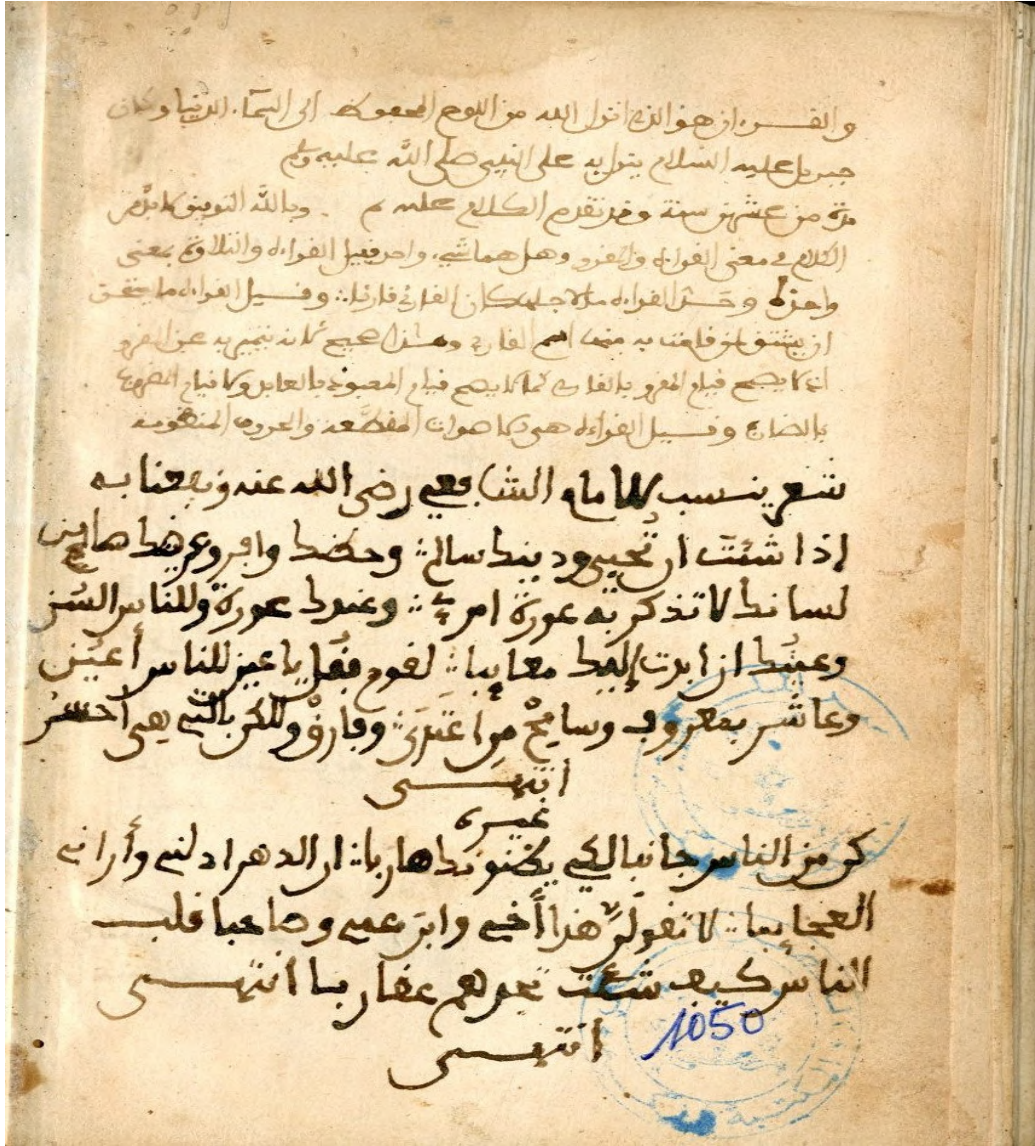 والقرءان هو الذي انزل الله من اللوح المحفوظ الى السماء الدنيا وكان
جبريل عليه السلام ينزل به على النبي صلى الله عليه وسلم
مدة من عشرين سنة وقد تقدم الكلام عليه وبالله التوفيق
الكلام في معنى القراءة وهل هما شيء واحد فقيل القراءة والتلاوة بمعنى
واحد القراءة ما لاجله كان القارئ قارئا وقيل القراءة ما
ان يشتق لمن قامت به منها اسم القارئ صحيح لانه يتميز به عن
اذ لا يصح قيام بالقارئ كما لا يصح قيام المعبود بالعابد ولا قيام المضروب
بالضارب وقيل القراءة هي المقطعة والحروف المنظومة
شعر ينسب للامام الشافعي رضي الله عنه ونفعنا به
إذا شئت ان تحيى ودينك سالم وحظك وافر وعرضك صاين
لسانك لا تذكر به عورة امرئ وعندك عورة وللناس السن
وعينك ان ابدت إليك معايبا لقوم فقل يا عين للناس أعين
وعاشر بمعروف وسامح من اعتدى وفارق ولكن بالتي هي احسن
انتهى
غيره
كن من الناس جانبا لكي يظنونك هاربا ان الدهر ادلني وأراني
العجايبا لا تقولن هذا أخي وابن عمي وصاحبا قلب
الناس كيف شئت تجدهم عقاربا انتهى
انتهى
1050